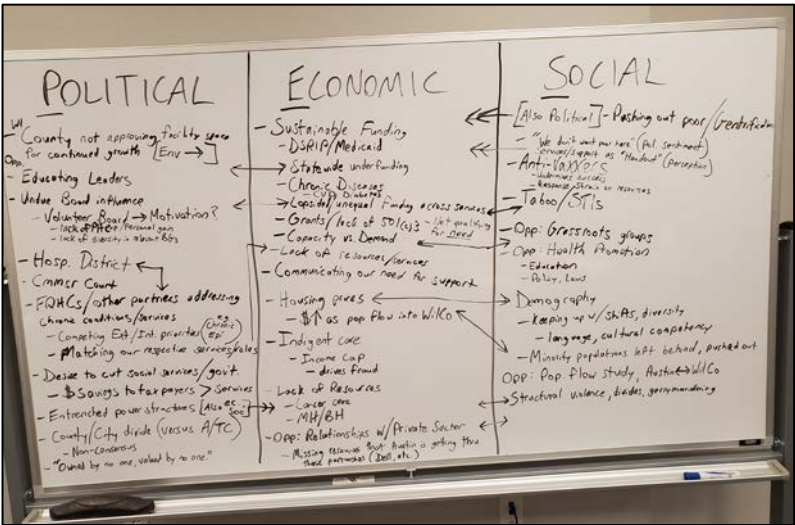 POLITICAL
WI.
- County not approving facility space
for continued growth [Env →]
Opp.
- Educating Leaders
- Undue Board influence
- Volunteer Board → Motivation?
- lack of /Personal gain
- lack of diversity in relevant BGs
- Hosp. District
- Cmmsr Court
- FQHCs/other partners addressing
chronic conditions/services
- Competing Ext/Int. priorities (e.g. Chronic Epi)
- Matching our respective services/roles
- Desire to cut social services/govt.
- $ savings to taxpayers > Services
- Entrenched power structures [Also ec. soc.]
- County/City divide (versus A/TC)
- Non-consensus
- "Owned by no one, valued by no one."
ECONOMIC
- Sustainable Funding
- DSRIP/Medicaid
- Statewide underfunding
- Chronic Diseases
- CVD, Diabetes
- Lopsided/unequal Funding across services
- Grants/lack of 501(c)3 - Not qualifying for need
- Capacity vs Demand
- Lack of resources/services
- Communicating our need for support
- Housing prices
- $↑ as pop flow into WilCo
- Indigent care
- Income Cap
- drives fraud
- Lack of Resources
- Cancer care
- MH/BH
- Opp: Relationships w/Private Sector
- Missing resources that Austin is getting thru
these partnerships (Dell, etc.)
SOCIAL
- [Also Political] - Pushing out poor/Gentrification
- "We don't want poor here" (Pol. sentiment)
services/support as "Handout" (perception)
- Anti-Vaxxers
- Undermines success
- Response/Strain on resources
- Taboo/STIs
- Opp: Grassroots groups
- Opp: Health Promotion
- Education
- Policy, Laws
- Demography
- Keeping up w/ shifts, diversity
- language, cultural competency
- Minority populations left behind, pushed out
Opp: Pop. flow study, Austin↔WilCo
- Structural violence, divides, gerrymandering